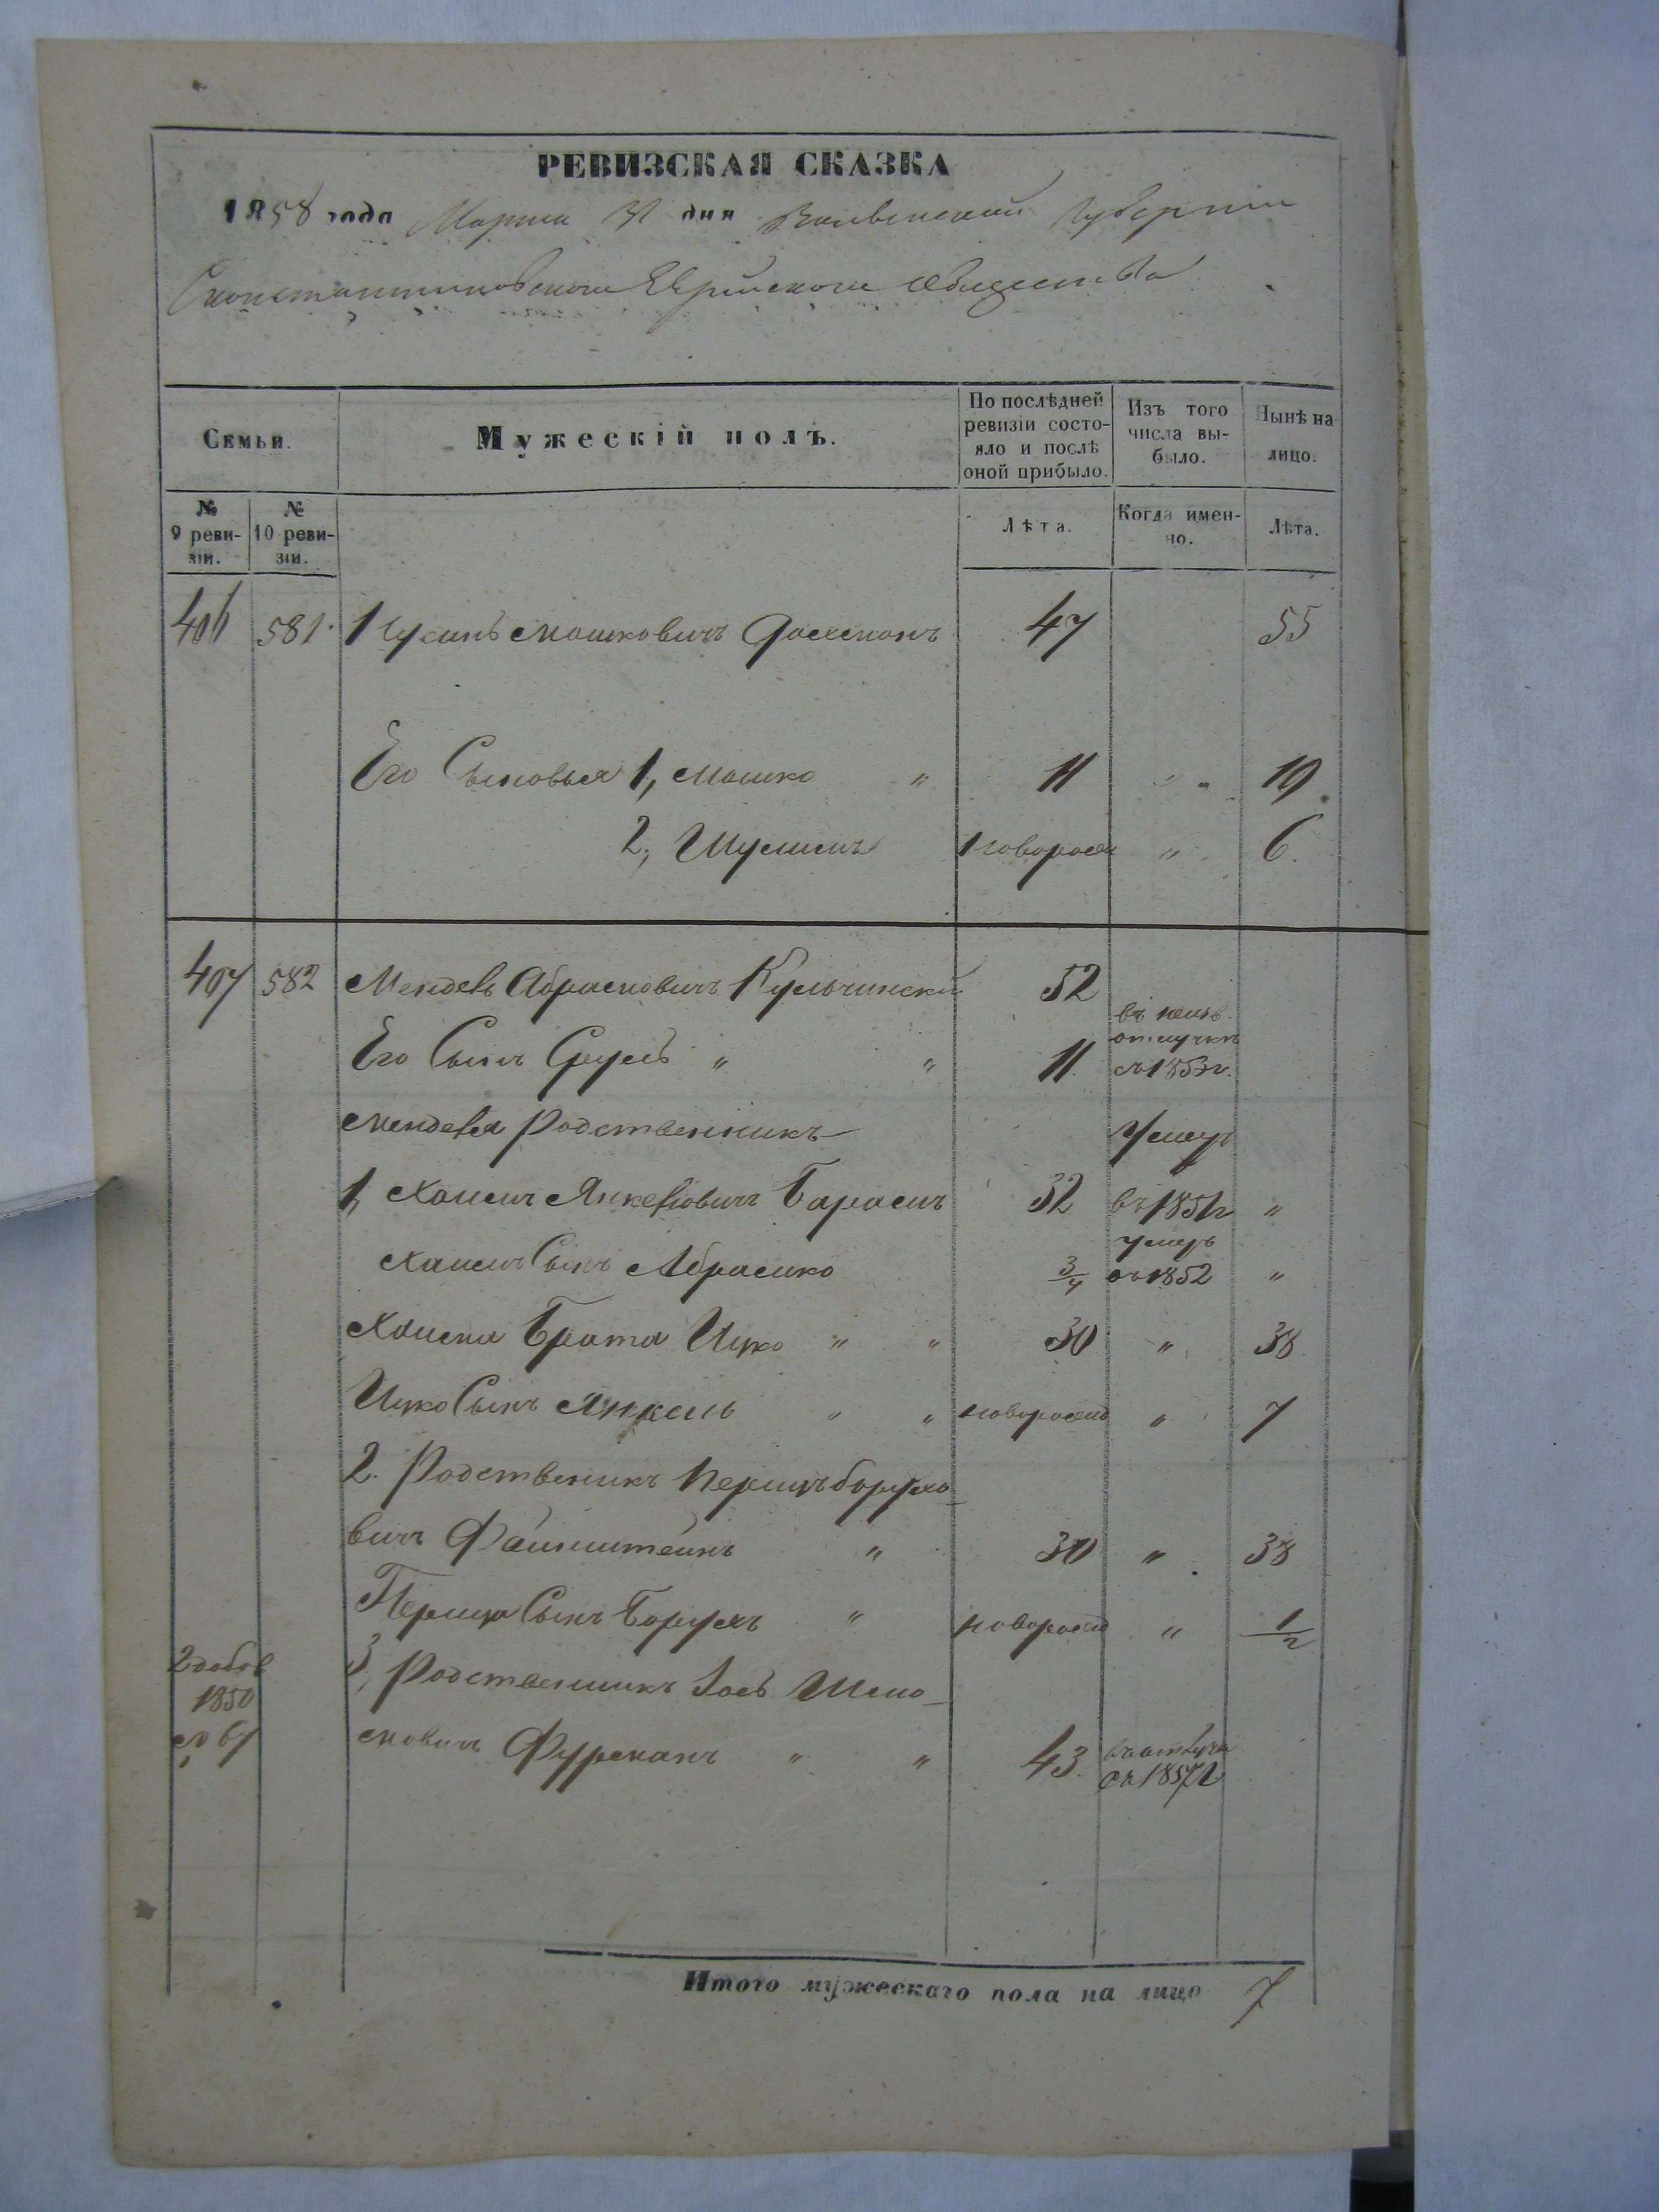 РЕВИЗСКАЯ СКАЗКА
1858 года Марта 31 дня Волынской Губернии
Сконстантиновскаго Еврейскаго Общества
Семьи.
Мужескій полъ.
По послѣдней ревизіи состо-
яло и послѣ оной прибыло.
Изъ того числа вы-
было.
Нынѣ на лицо.
№ 9 реви-
зіи.
№ 10 реви-
зіи.
Лѣта.
Когда имен-
но.
Лѣта.
406 581 Мошковичъ 47 55
Его Сыновья 1, Мошко " 11 " 19
2, Шулимъ новорожд " 6
407 582 Мендель Абрамовичъ Кульчински 52
Его Сынъ Сруль " " 11 отлучкѣ съ 1853г.
Менделя Родственникъ
1, Хаимъ Янкелiовичъ Барамъ 32 Умеръ въ 1851г "
Хаимъ Сынъ Абрамко 3/4 умеръ въ 1852 "
Хаима Брата Ицко " " 30 " 38
Ицко Сынъ Янкель " " новорожд " 7
2. Родственикъ Перицъ борухо-
вичъ Файнштейнъ " 30 " 38
Перица Сынъ Борухъ " новорожд " 1/2
2 добов 1850 67
3, Родственникъ Іось Шмо-
мовичъ Фурманъ " " 43 въ отлучкѣ съ 1857г
Итого мужескаго пола на лицо 7